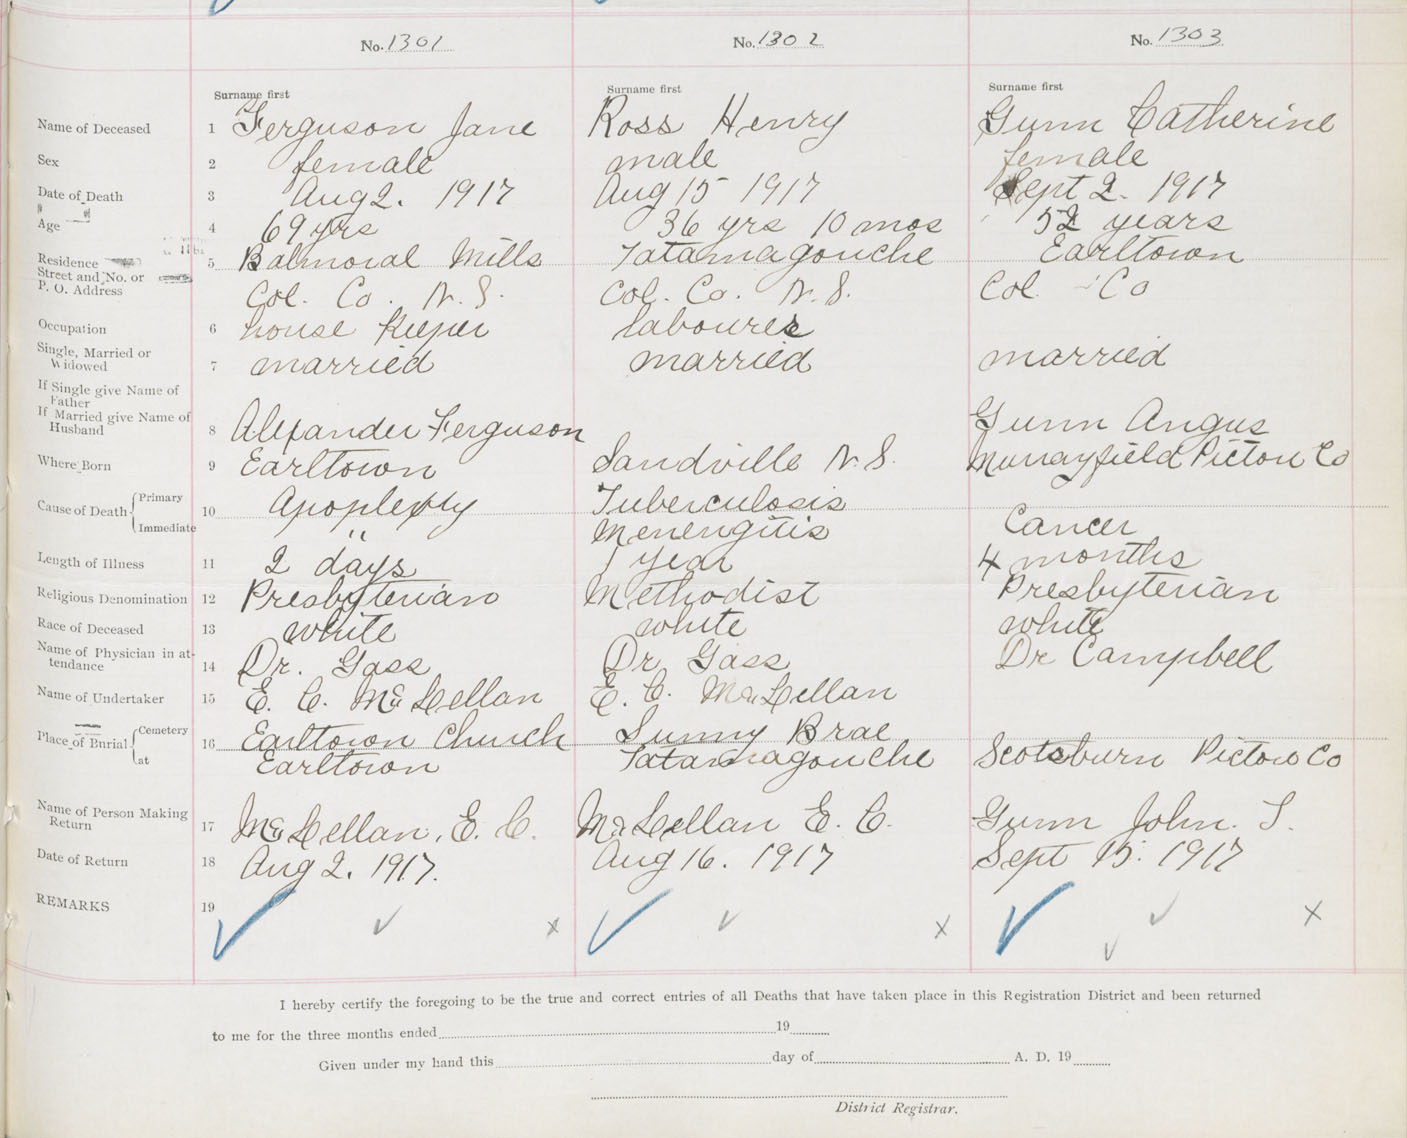 No. 1301 No. 1302 No. 1303
Surname first Surname first Surname first
Name of Deceased 1 Ferguson Jane Ross Henry Gunn Catherine
Sex 2 female male female
Date of Death 3 Aug 2. 1917 Aug 15 1917 Sept 2. 1917
Age 4 69 yrs 36 yrs 10 mos 52 years
Residence 5 Balmoral Mills Tatamagouche Earltown
Street and No. or
P. O. Address Col. Co. N. S. Col. Co. N. S. Col Co
Occupation 6 house keeper labourer
Single, Married or
Widowed 7 married married married
If Single give Name of
Father
If Married give Name of
Husband 8 Alexander Ferguson Gunn Angus
Where Born 9 Earltown Sandville N. S. Murrayfield Pictou Co
Cause of Death Primary 10 Apoplexy Tuberculosis
Immediate " Menengitis Cancer
Length of Illness 11 2 days 1 year 4 months
Religious Denomination 12 Presbyterian Methodist Presbyterian
Race of Deceased 13 white white white
Name of Physician in at-
tendance 14 Dr. Gass Dr Gass Dr Campbell
Name of Undertaker 15 E. C. McLellan E. C. McLellan
Place of Burial Cemetery 16 Earltown Church Sunny Brae
at Earltown Tatamagouche Scotsburn Pictou Co
Name of Person Making
Return 17 McLellan, E. C. McLellan E. C. Gunn John. S.
Date of Return 18 Aug 2. 1917. Aug 16. 1917 Sept 15. 1917
REMARKS 19
I hereby certify the foregoing to be the true and correct entries of all Deaths that have taken place in this Registration District and been returned
to me for the three months ended 19
Given under my hand this day of A. D. 19
District Registrar.